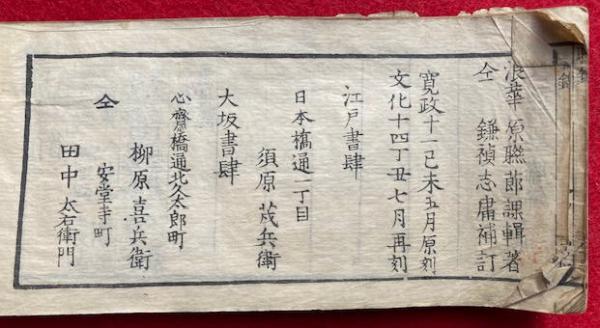 浪華 原聮莭謀輯著
仝 鎌禎志庸補訂
寛政十一己未五月原刻
文化十四丁丑七月再刻
江戸書肆
日本橋通一丁目
須原茂兵衛
大坂書肆
心齋橋通北久太郎町
柳原喜兵衛
仝 安堂寺町
田中太右衛門